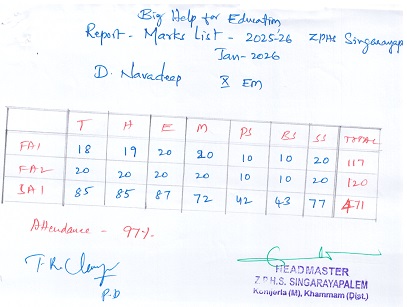 Big Help for Education
Report - Marks List - 2025-26 ZPHS Singarayap
Jan-2026
D. Navadeep X Em
T H E M PS BS SS TOTAL
FA1 18 19 20 20 10 10 20 117
FA2 20 20 20 20 10 10 20 120
SA1 85 85 87 72 42 43 77 471
Attendance - 97%
P.D
HEADMASTER
Z.P.H.S. SINGARAYAPALEM
Konjerla (M), Khammam (Dist.)